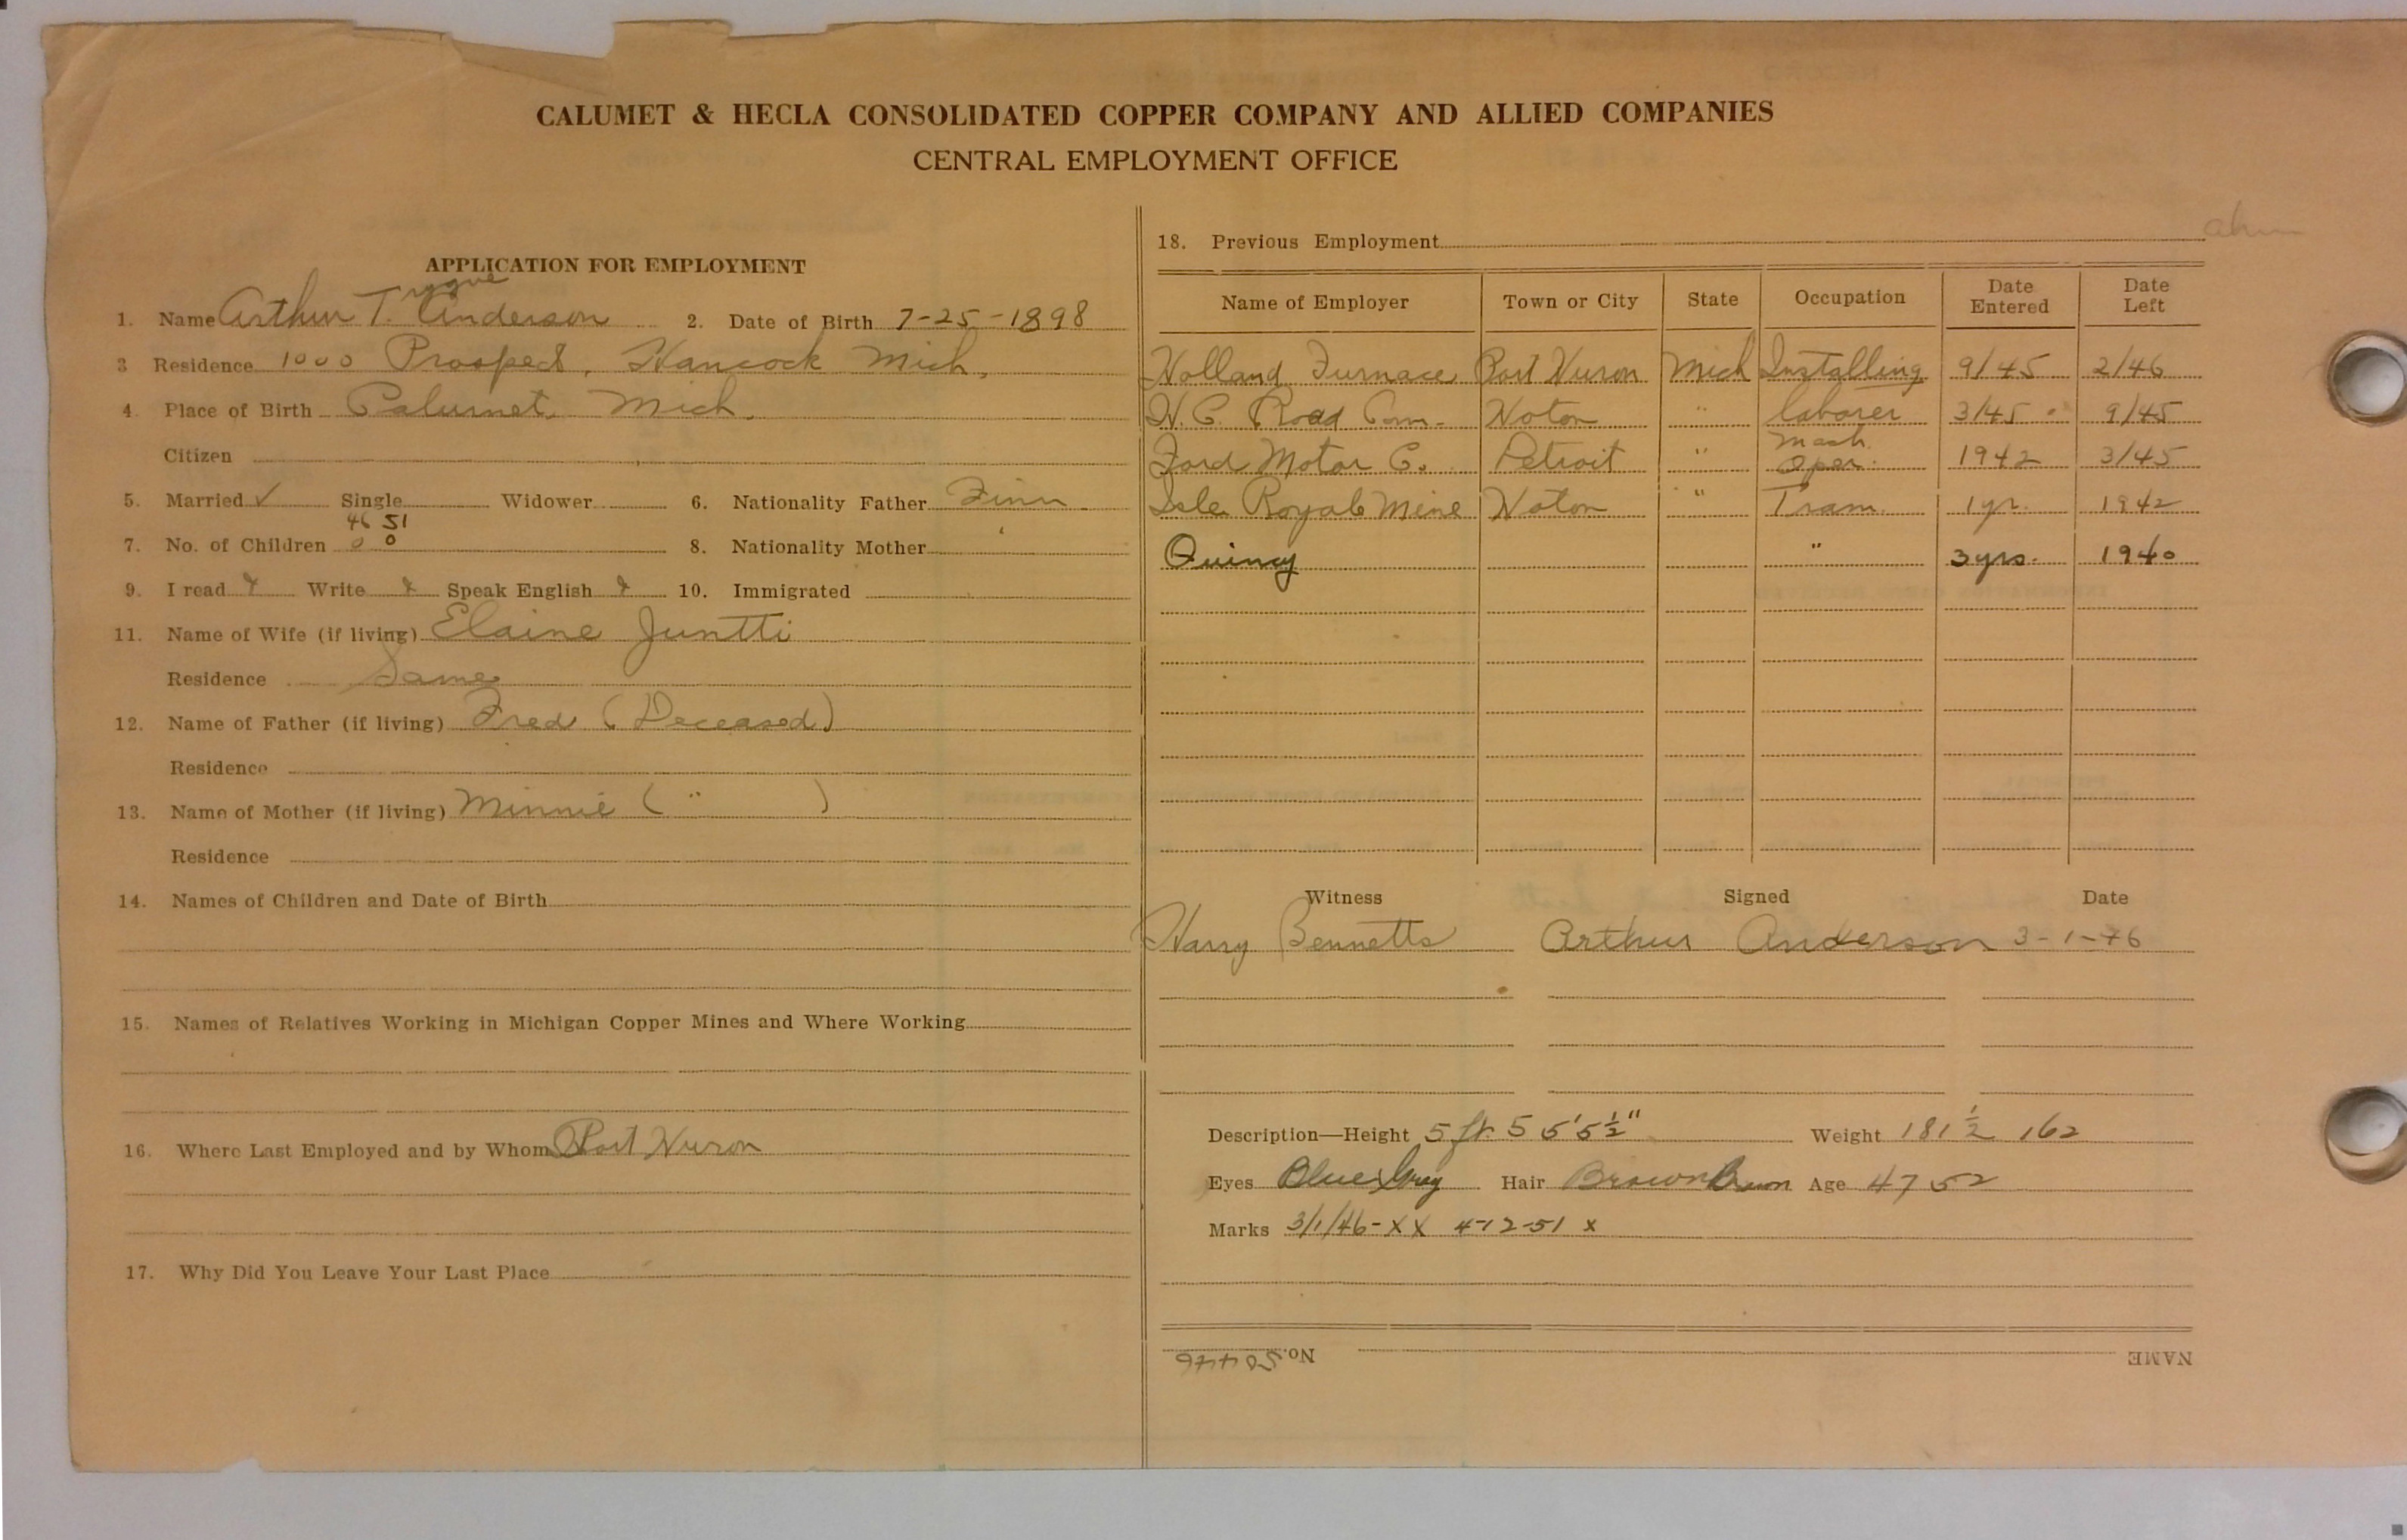 CALUMET & HECLA CONSOLIDATED COPPER COMPANY AND ALLIED COMPANIES
CENTRAL EMPLOYMENT OFFICE
APPLICATION FOR EMPLOYMENT
rygve
1. Name Arthur T. Anderson 2. Date of Birth 7-25-1898
3 Residence 1000 Prospect, Hancock Mich.
4. Place of Birth Calumet, Mich.
Citizen
5. Married ✓ Single Widower 6. Nationality Father Finn
46 51
7. No. of Children 0 0 8. Nationality Mother
9. I read x Write x Speak English x 10. Immigrated
11. Name of Wife (if living) Elaine Juntti
Residence Same
12. Name of Father (if living) Fred (Deceased)
Residence
13. Name of Mother (if living) Minnie ( " )
Residence
14. Names of Children and Date of Birth
15. Names of Relatives Working in Michigan Copper Mines and Where Working
16. Where Last Employed and by Whom Port Huron
17. Why Did You Leave Your Last Place
18. Previous Employment
Name of Employer Town or City State Occupation Date Entered Date Left
Holland Furnace Port Huron Mich Installing 9/45 2/46
H.C. Road Com. Hoton " laborer 3/45 9/45
Ford Motor C. Detroit " Mach. Oper. 1942 3/45
Isle Royale Mine Hoton " Tram. 1yr. 1942
Quincy " 3yrs. 1940
Witness Signed Date
Harry Bennetts Arthur Anderson 3-1-46
Description—Height 5 ft. 5 5'5½" Weight 181½ 162
Eyes Blue Gray Hair Brown Brown Age 47 52
Marks 3/1/46-XX 4-12-51 x
NAME No. 50446